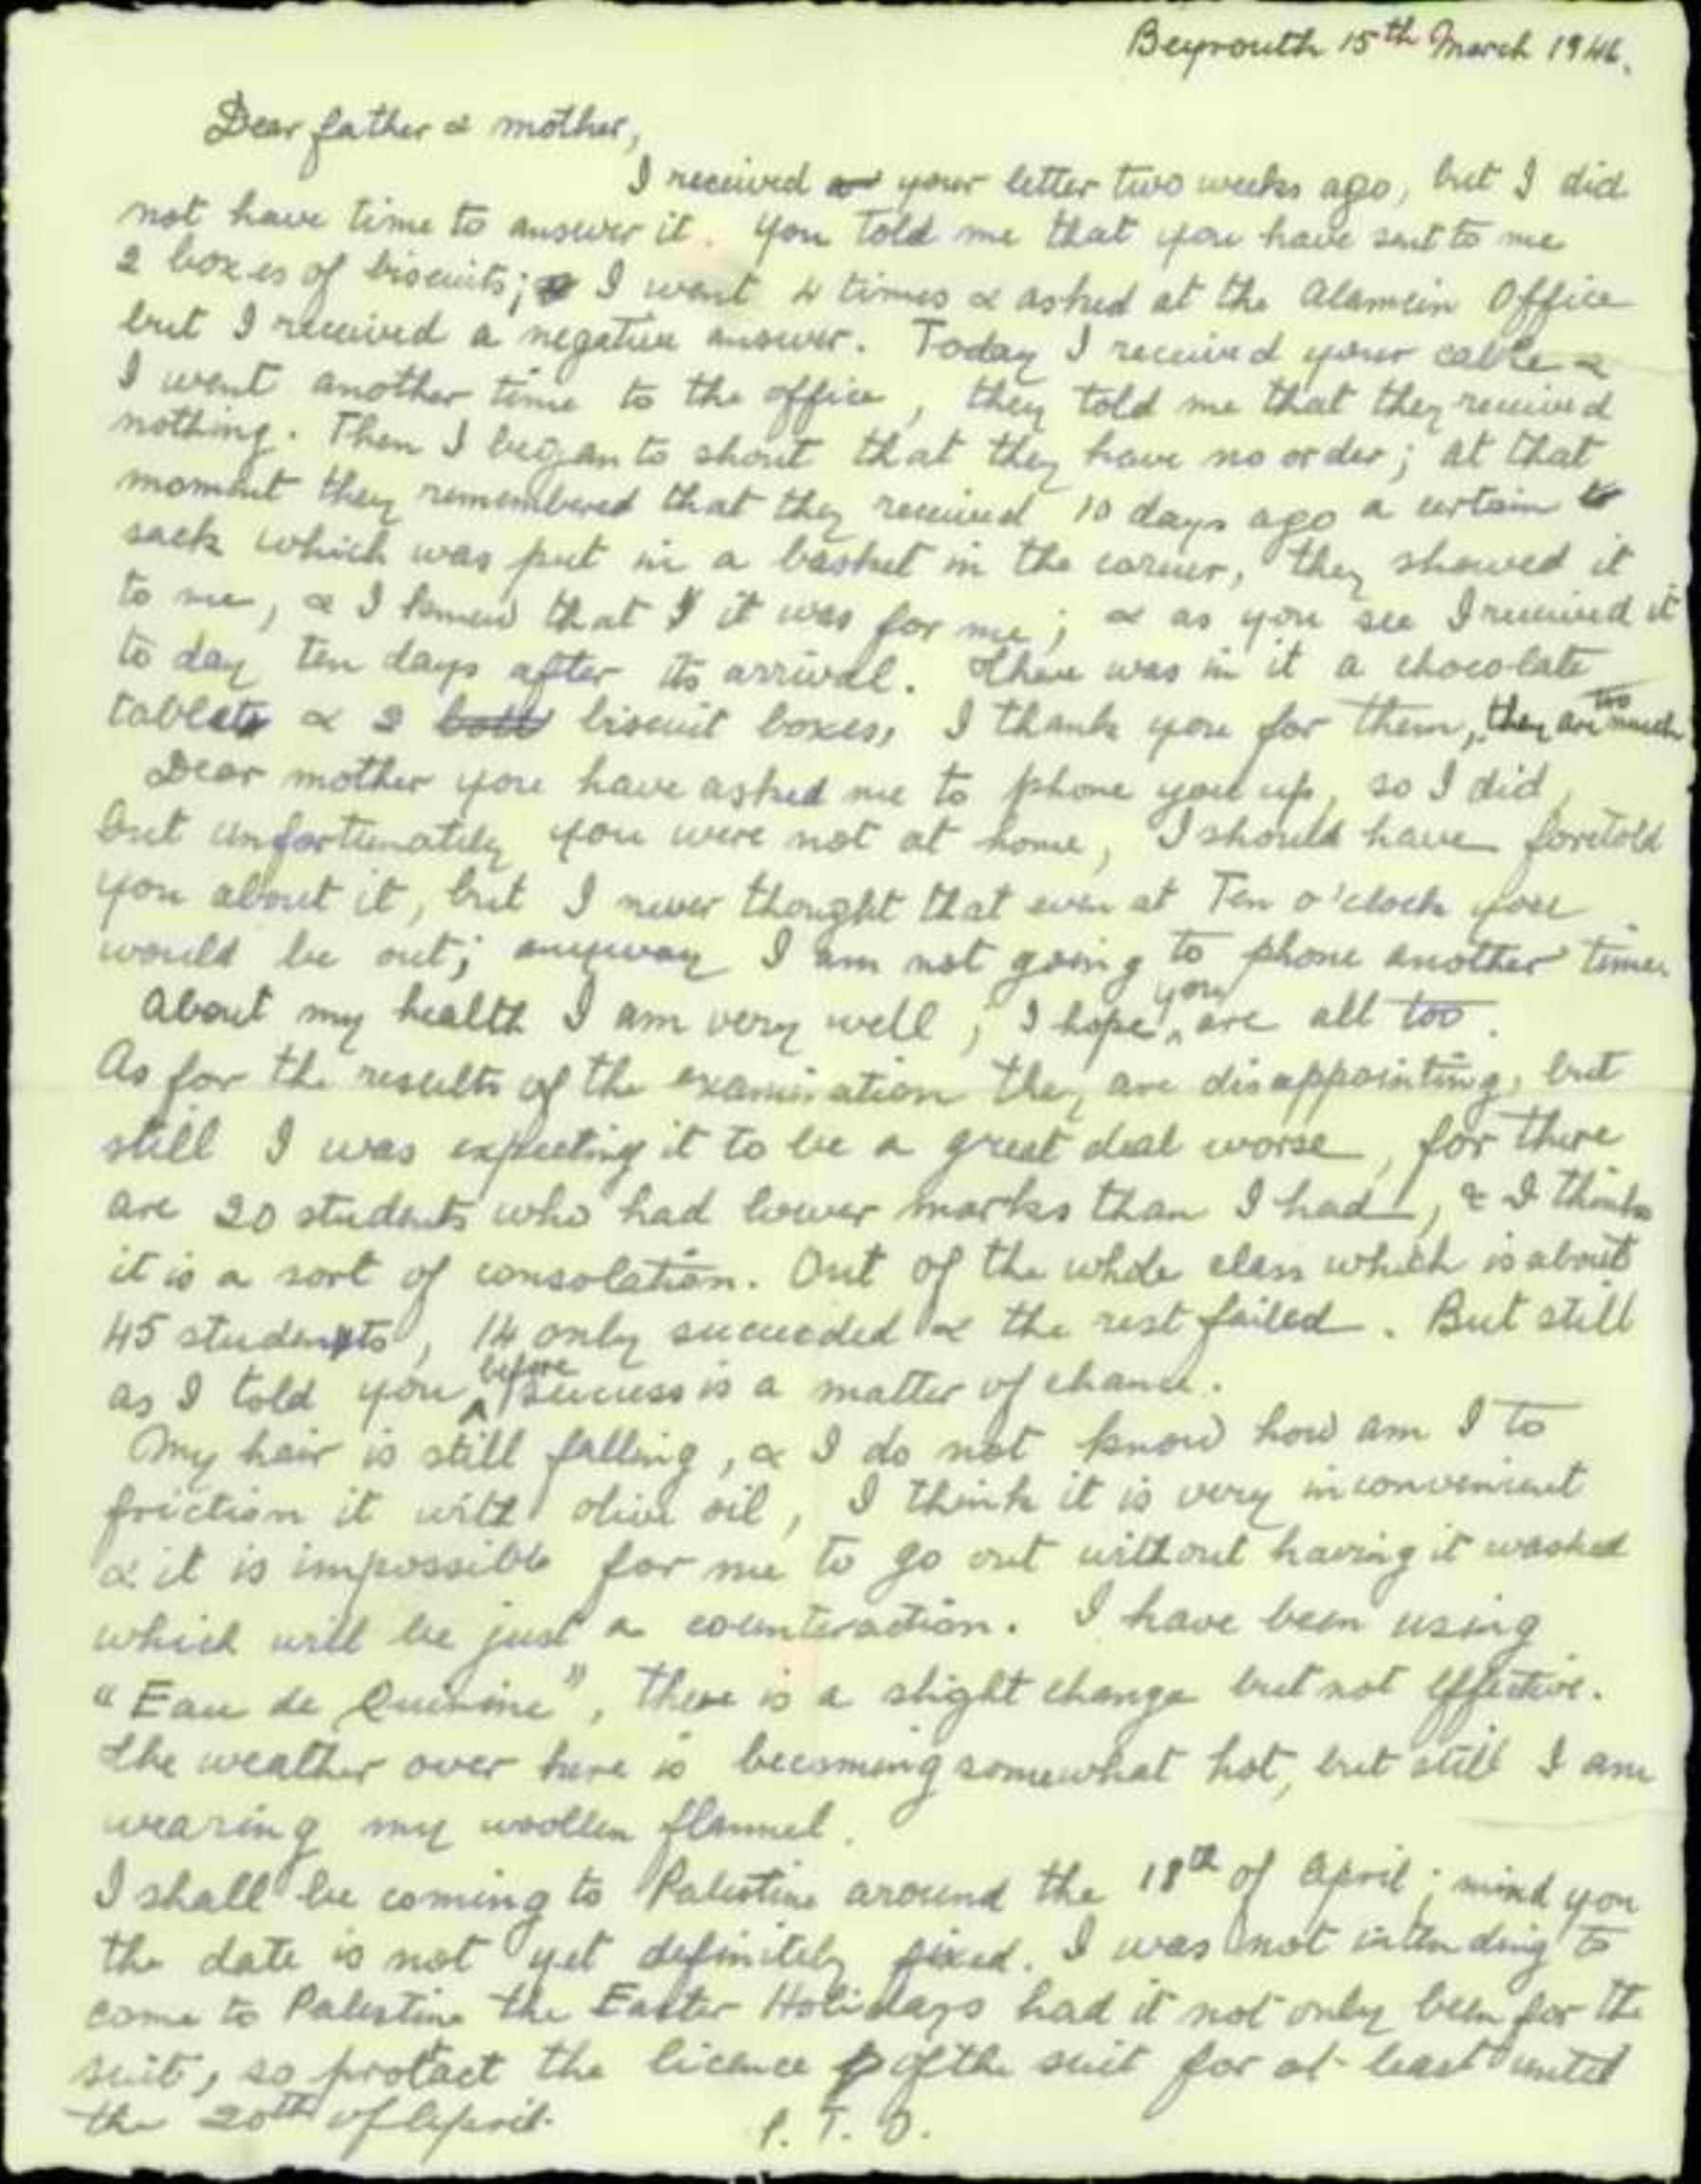 Beyrouth 15th March 1946.
Dear father & mother,
I received your letter two weeks ago, but I did
not have time to answer it. You told me that you have sent to me
2 boxes of biscuits; I went 4 times & asked at the Alamein Office
but I received a negative answer. Today I received your cable &
I went another time to the office, they told me that they received
nothing. Then I began to shout that they have no order; at that
moment they remembered that they received 10 days ago a certain
sack which was put in a basket in the corner, they showed it
to me, & I knew that it was for me; & as you see I received it
to day ten days after its arrival. There was in it a chocolate
tablets & 2 biscuit boxes, I thank you for them, they are too much
Dear mother you have asked me to phone you up, so I did,
but unfortunately you were not at home, I should have foretold
you about it, but I never thought that even at Ten o'clock you
would be out; anyway I am not going to phone another time.
About my health I am very well, I hope you are all too.
As for the results of the examination they are disappointing, but
still I was expecting it to be a great deal worse, for there
are 20 students who had lower marks than I had, & I think
it is a sort of consolation. Out of the whole class which is about
45 students, 14 only succeeded & the rest failed. But still
as I told you before success is a matter of chance.
My hair is still falling, & I do not know how am I to
friction it with olive oil, I think it is very inconvenient
& it is impossible for me to go out without having it washed
which will be just a counteraction. I have been using
"Eau de Quinine", there is a slight change but not effective.
The weather over here is becoming somewhat hot, but still I am
wearing my woollen flannel.
I shall be coming to Palestine around the 18th of April; mind you
the date is not yet definitely fixed. I was not intending to
come to Palestine the Easter Holidays had it not only been for the
suit, so protact the licence of the suit for at-least until
the 20th of April. P.T.O.